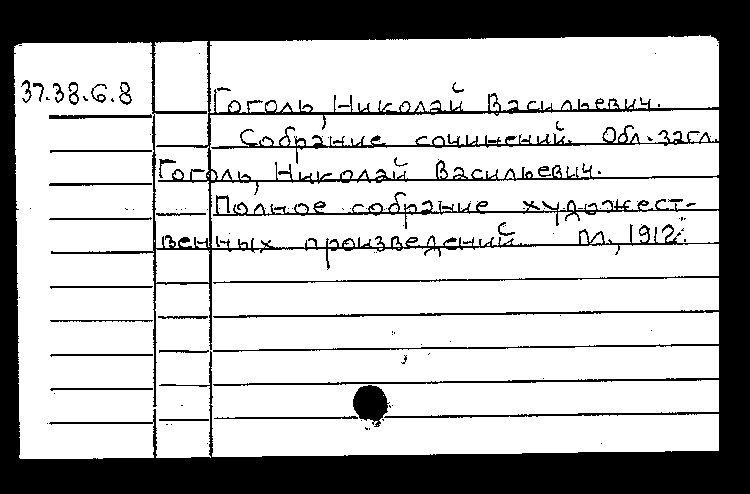 37.38.6.8
Гоголь, Николай Васильевич.
Собрание сочинений. Обл. загл.
Гоголь, Николай Васильевич.
Полное собрание художест-
венных произведений. 1912.